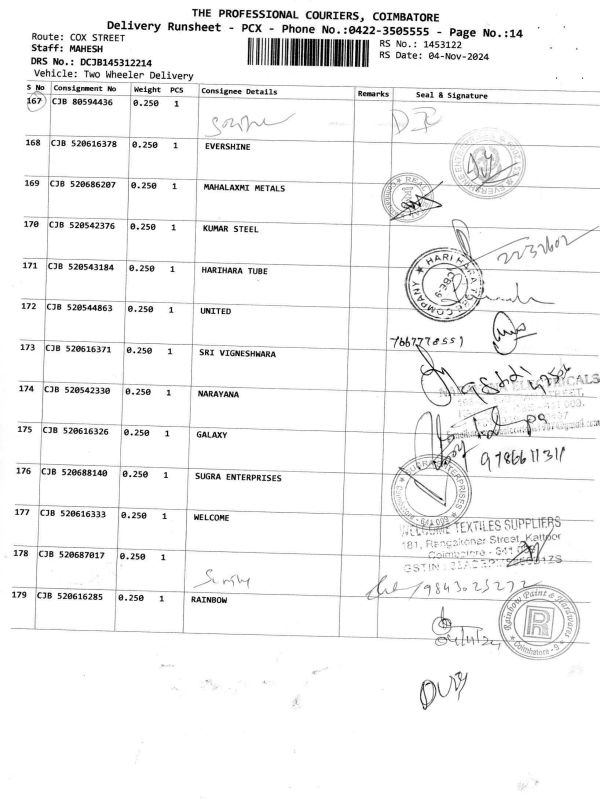 THE PROFESSIONAL COURIERS, COIMBATORE
Delivery Runsheet - PCX - Phone No.:0422-3505555 - Page No.:14
Route: COX STREET RS No.: 1453122
Staff: MAHESH RS Date: 04-Nov-2024
DRS No.: DCJB145312214
Vehicle: Two Wheeler Delivery
S No Consignment No Weight PCS Consignee Details Remarks Seal & Signature
167 CJB 80594436 0.250 1
168 CJB 520616378 0.250 1 EVERSHINE
169 CJB 520686207 0.250 1 MAHALAXMI METALS
170 CJB 520542376 0.250 1 KUMAR STEEL
2232602
171 CJB 520543184 0.250 1 HARIHARA TUBE
HARI HARA TUBE COMPANY
CBE-9
172 CJB 520544863 0.250 1 UNITED
7667778551
173 CJB 520616371 0.250 1 SRI VIGNESHWARA
174 CJB 520542330 0.250 1 NARAYANA
175 CJB 520616326 0.250 1 GALAXY
9786611311
176 CJB 520688140 0.250 1 SUGRA ENTERPRISES
SUGRA ENTERPRISES
177 CJB 520616333 0.250 1 WELCOME
WELCOME TEXTILES SUPPLIERS
181, Rangakonar Street, Kattoor
Coimbatore - 641
GSTIN
178 CJB 520687017 0.250 1
9843025272
179 CJB 520616285 0.250 1 RAINBOW
Rainbow Paint & Hardwares
Coimbatore - 9
R
04/11/24